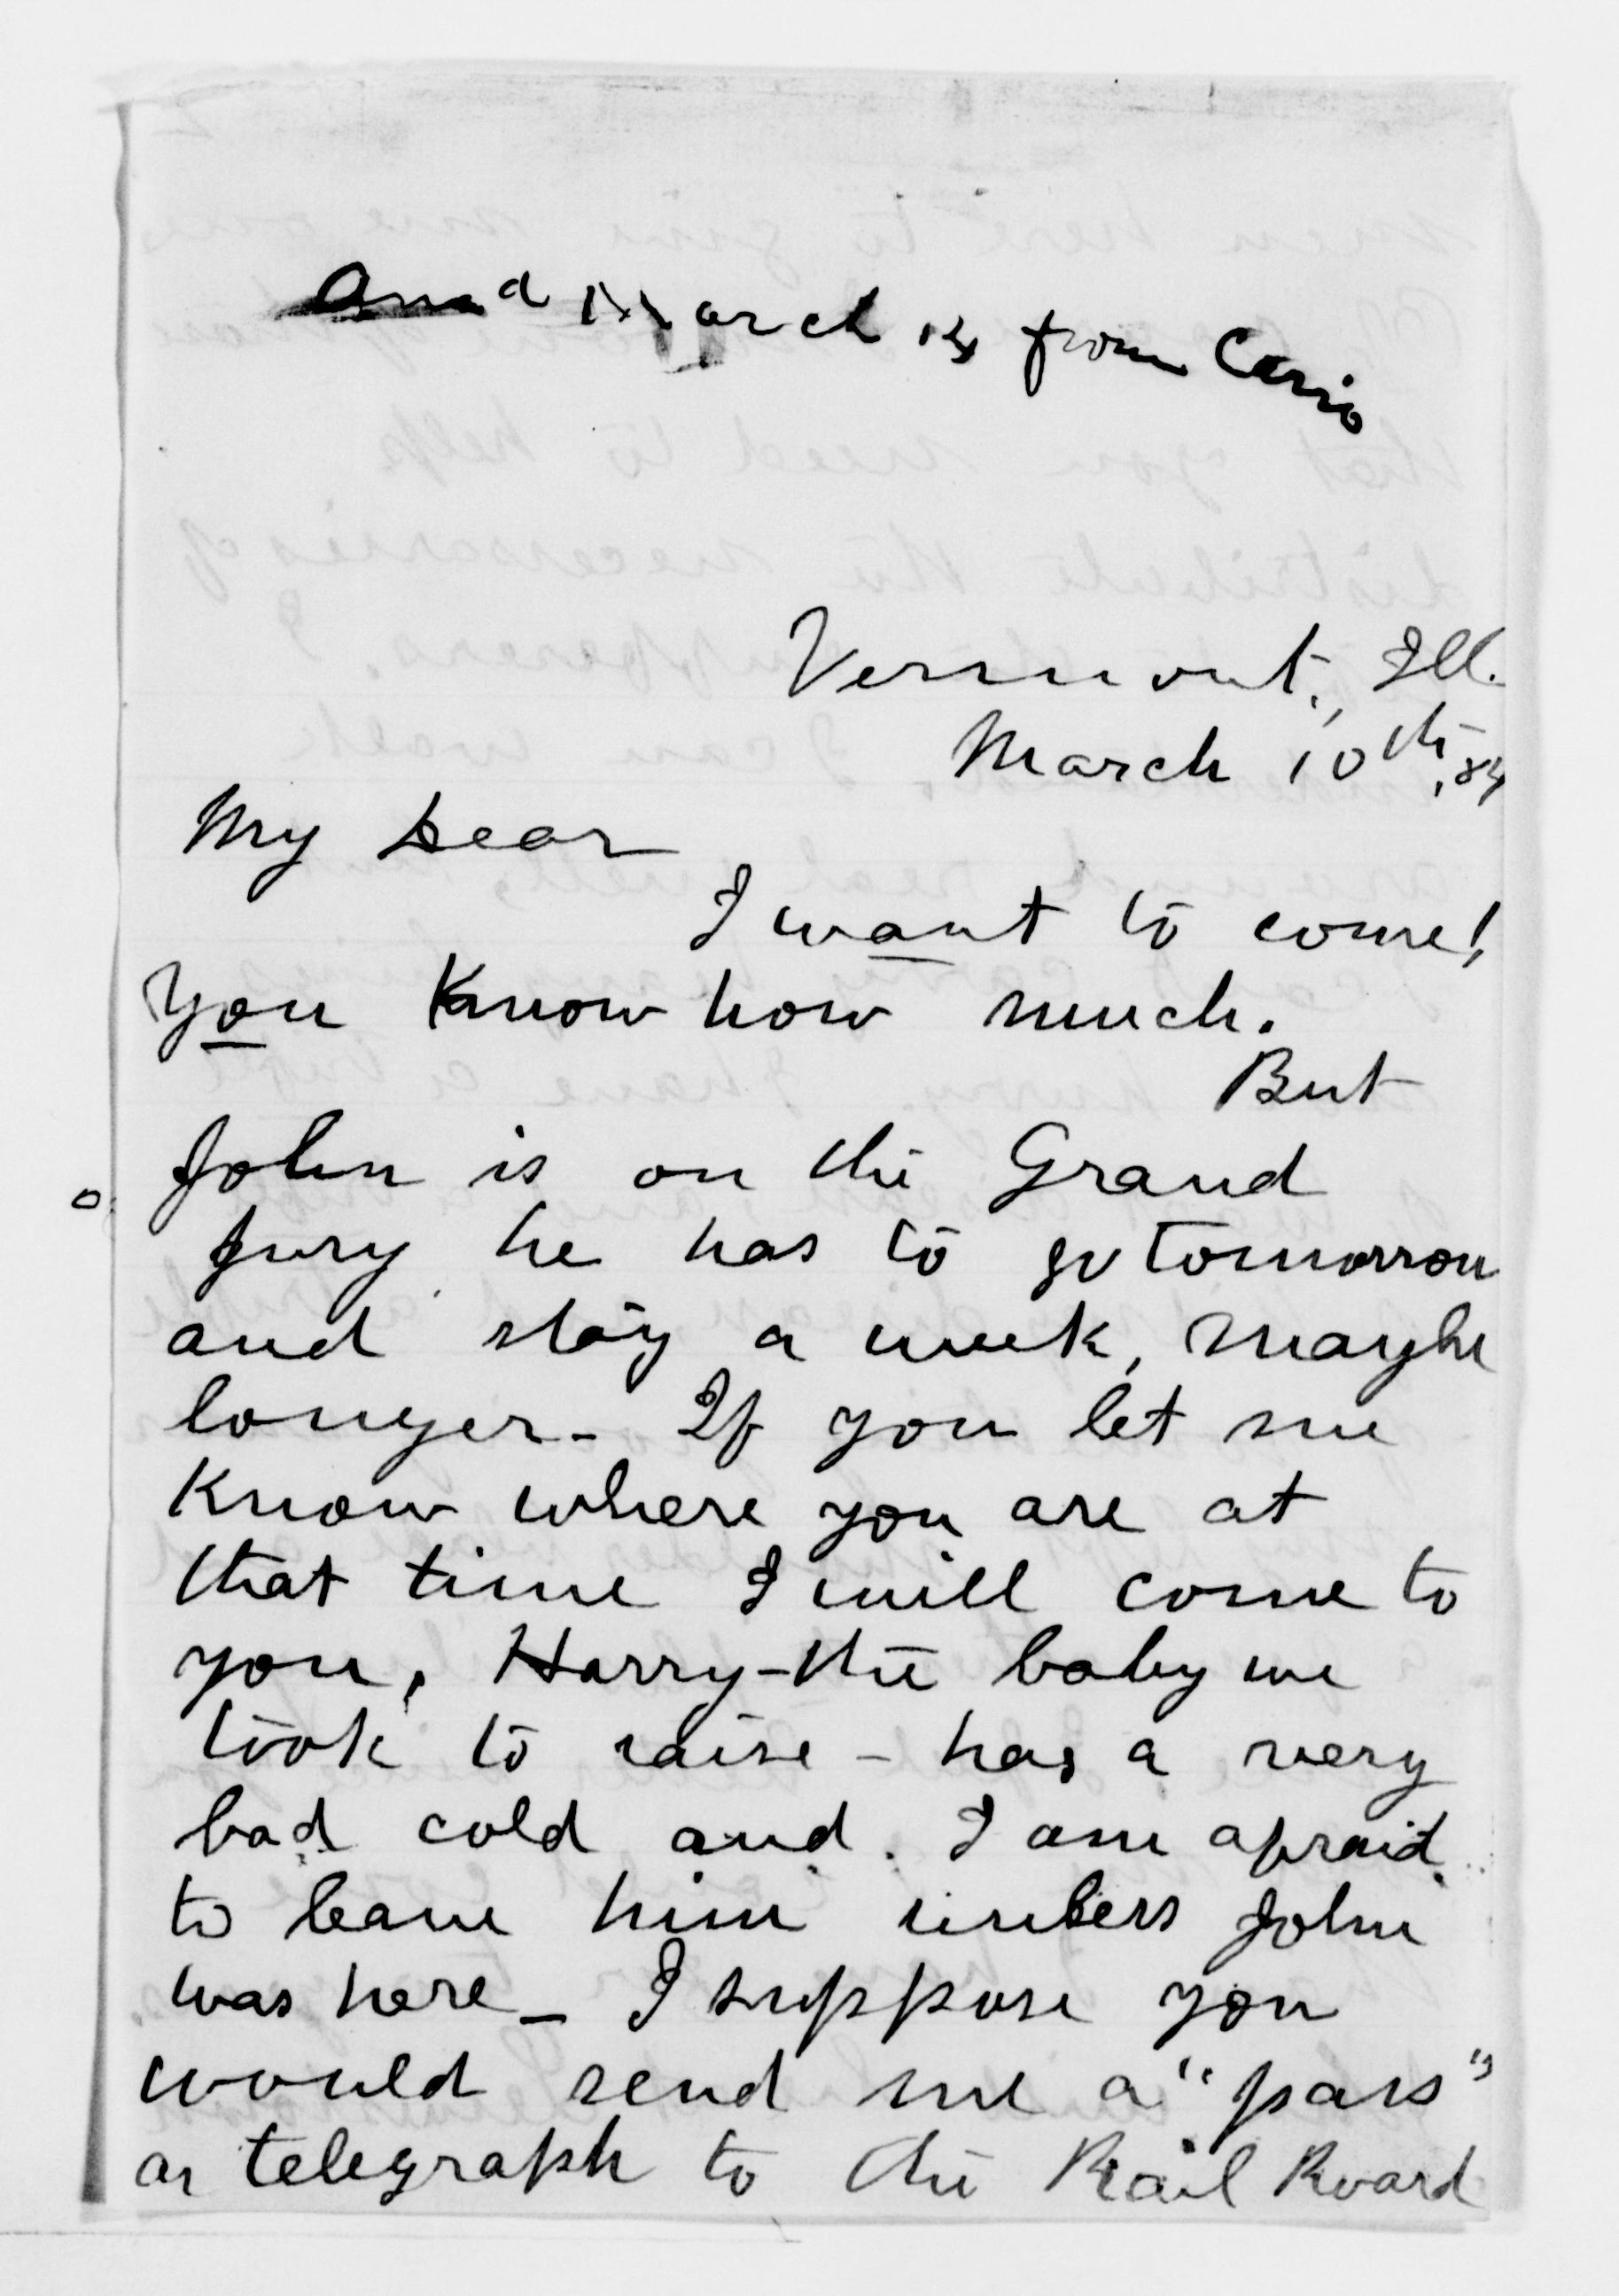 Ansd March 14 from Cairo
Vermont, Ill.
March 10th, 84
My Dear
I want to come!
You Know how much.
But
John is on the Grand
Jury he has to go tomorrow
and stay a week, maybe
longer - If you let me
Know where you are at
that time I will come to
you, Harry - the baby we
took to raise - has a very
bad cold and I am afraid
to leave him unless John
was here - I suppose you
would send me a "pass"
or telegraph to the Rail Road